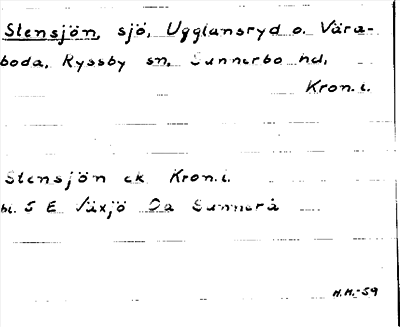 Stensjön, sjö, Ugglansryd o. Vära-
boda, Ryssby sn, Sunnerbo hd,
Kron. l.
Stensjön ek Kron. l.
bl. 5 E Växjö Sunnerå
H.H.-59